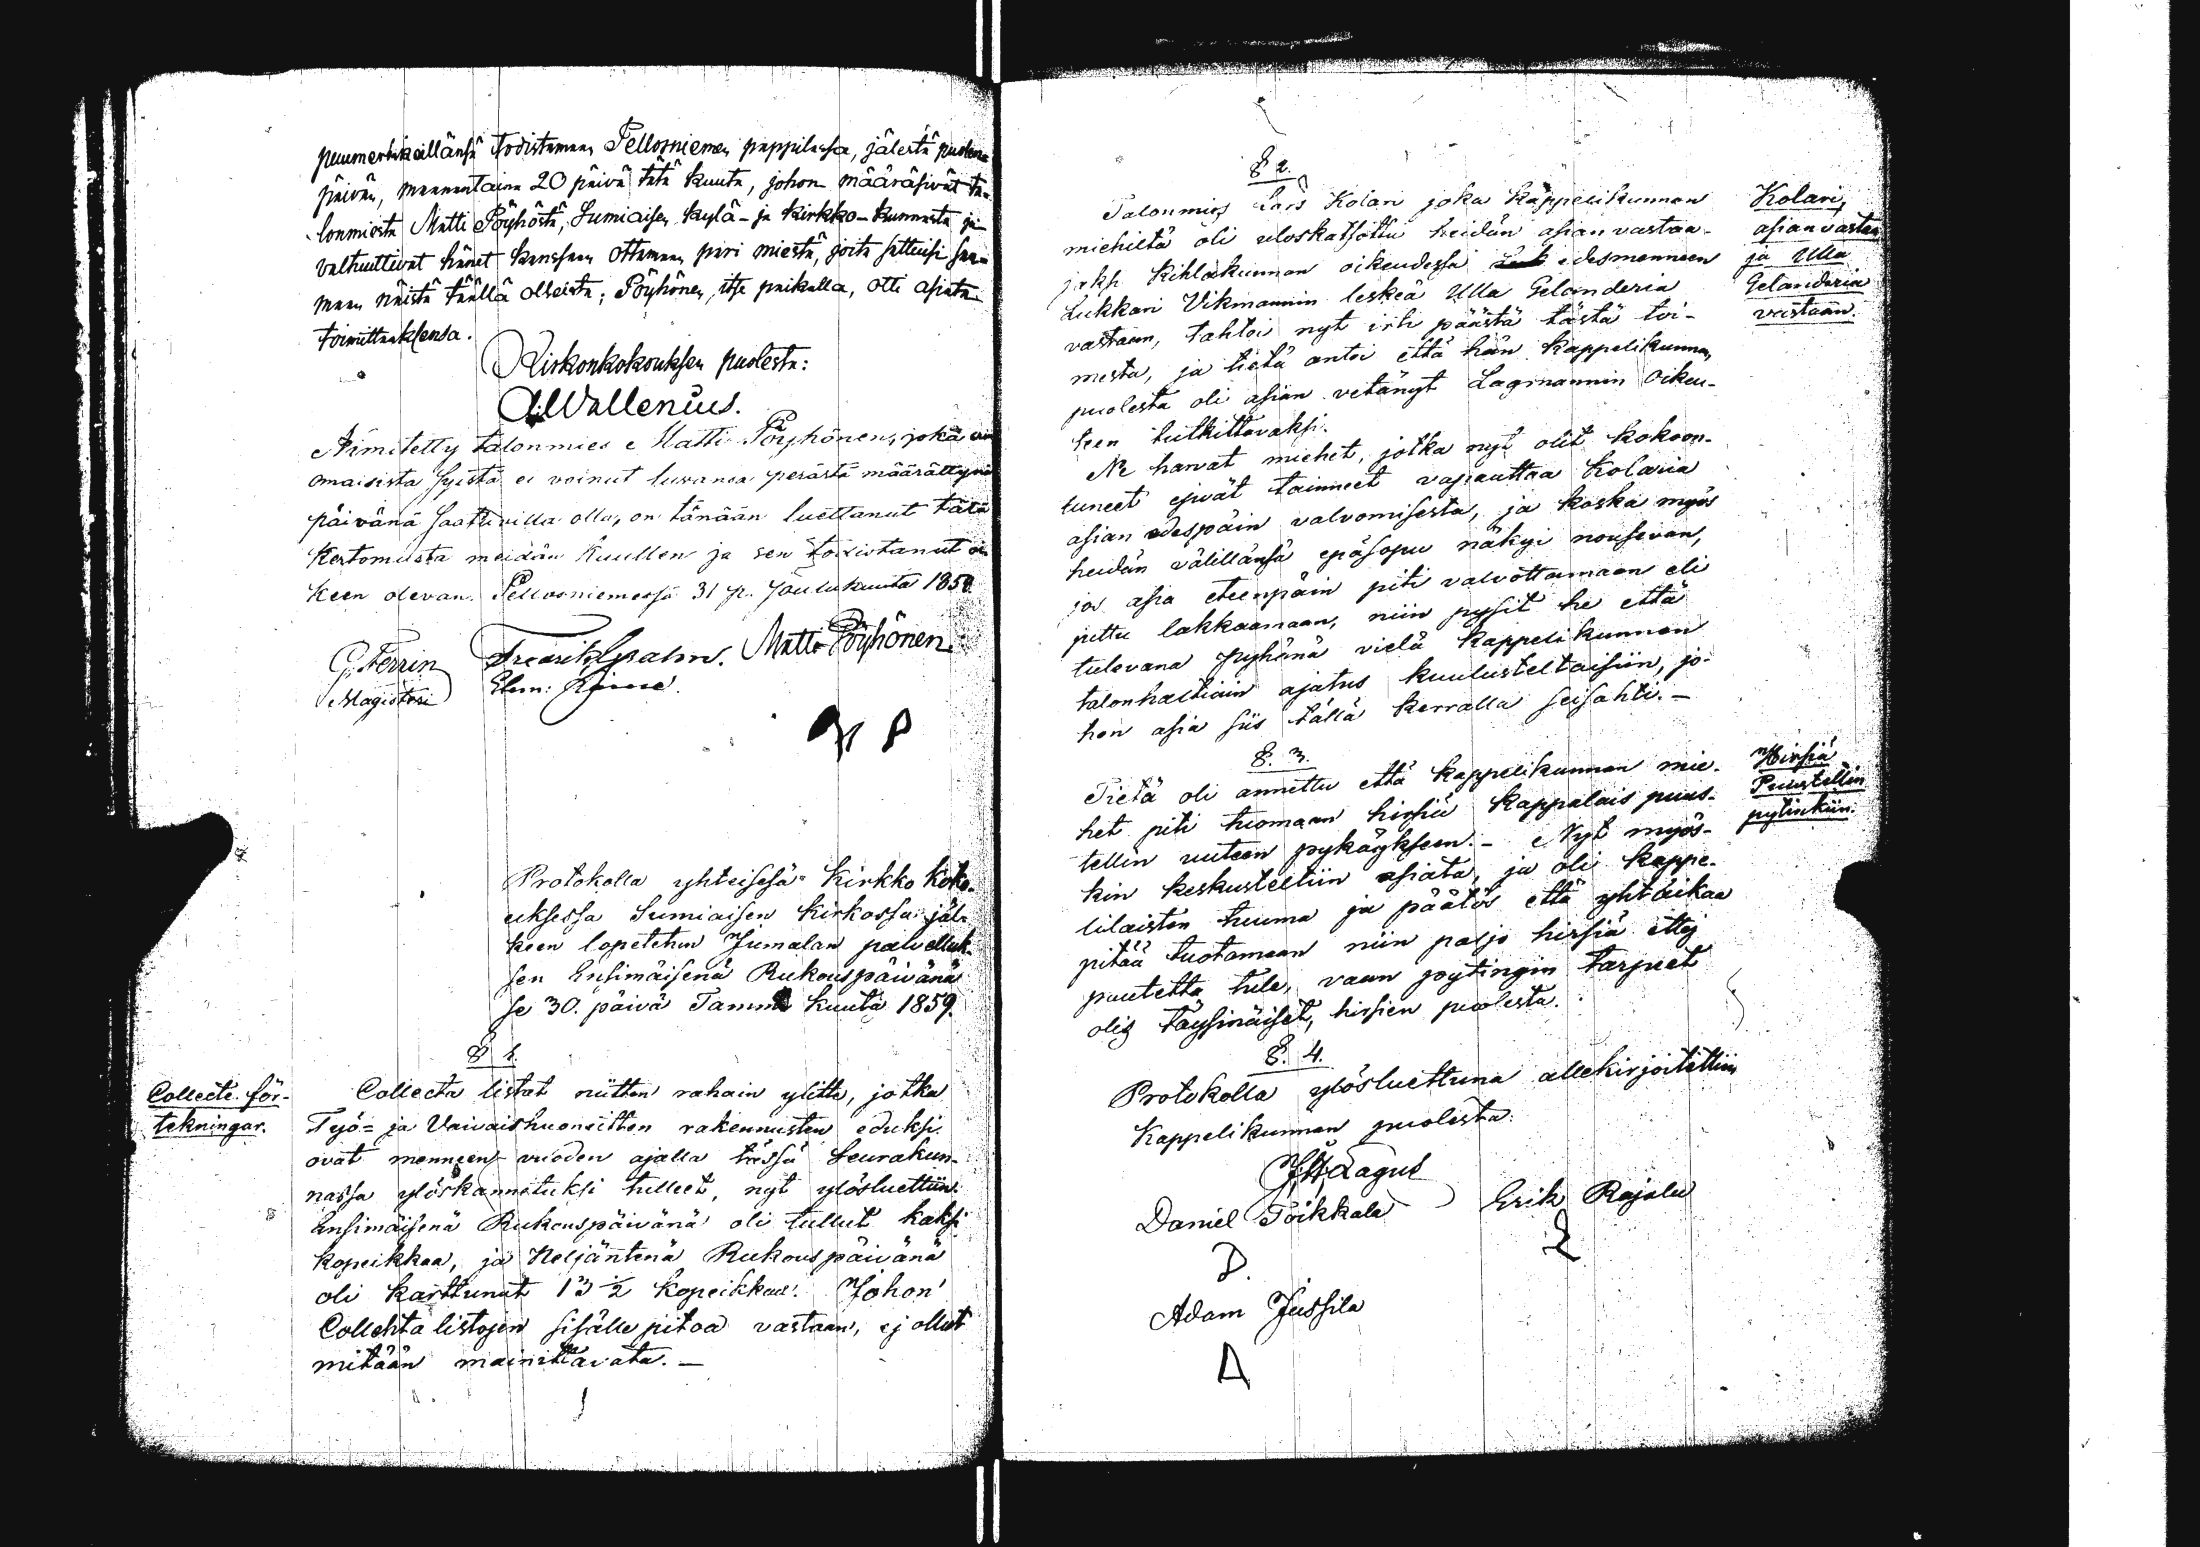 puumerkillänsä todistamaan Pellosniemen pappilassa, jälestä puolen-
päivän, maanantaina 20 päivä tätä kuuta, johon määräsivät ta-
lonmiestä Matti Pöyhöstä, Sumiaisen kylä- ja kirkko-kunnasta ja
valtuuttivat hänet kanssaan ottamaan pari miestä, joita sattuisi saa-
maan näistä täällä olleista; Pöyhönen, itse paikalla, otti asiata
toimittaaksensa.
Kirkonkokouksen puolesta:
A. Wallenius.
Nimitetty talonmies Matti Pöyhönen, joka
omaisista syistä ei voinut luvansa perästä määrättynä
päivänä saatuvilla olla, on tänään luettanut tätä
Kertomusta meidän kuullen ja sen todistanut oi-
keen olevan. Pellosniemessä 31 p. Joulukuuta 1858
G. Ferrin Fredrik Spalm. Matti Pöyhönen
Magisteri
Protokolla yhteisesä Kirkko koko-
uksessa Sumiaisen Kirkossa jäl-
keen lopetetun Jumalan palvelluk-
sen Ensimäisenä Rukouspäivänä
se 30. päivä Tammi kuuta 1859.
§ 1.
Collecte för-
tekningar.
Collecta listat niitten rahain ylitte, jotka
Työ- ja Vaivaishuoneitten rakennusten eduksi
ovat menneen vuoden ajalla tässä Seurakun-
nassa ylöskannetuksi tulleet, nyt ylösluettiin.
Ensimäisenä Rukouspäivänä oli tullut kaksi
kopeikkaa, ja Neljäntenä Rukouspäivänä
oli karttunut 13 ½ kopeikkaa. Johon
Collehta listojen sisälle pitoa vastaan, ej ollut
mitään mainittavata. —
§ 2.
Talonmies Lars Kolari joka kappelikunnan
miehiltä oli uloskatsottu heidän asian vastaa-
jaksi Kihlakunnan oikeudessa edesmenneen
Lukkari Vikmannin leskeä Ulla Gelanderia
vastaan, tahtoi nyt irti päästä tästä toi-
mesta, ja tietä antoi että hän kappelikunnan
puolesta oli asian vetänyt Lagmannin Oikeu-
teen tutkittavaksi.
Kolari,
asianvastaa
ja Ulla
Gelanderia
vastaan.
Ne harvat miehet, jotka nyt olit kokoon-
tuneet ejvät tainneet vapauttaa Kolaria
asian edespäin valvomisesta, ja koska myös
heidän välillänsä epäsopu näkyi nousevan,
jos asia eteenpäin piti valvottamaan eli
juttu lakkaamaan, niin pysit he että
tulevana pyhänä vielä kappelikunnan
talonhaltiain ajatus kuulusteltaisiin, jo-
hon asia siis tällä kerralla seisahti. —
§. 3.
Tietä oli annettu että kappelikunnan mie-
het piti tuomaan hirsiä kappalais puus-
tellin uuteen pykäykseen. — Nyt myös-
kin keskusteltiin asiata, ja oli kappe-
lilaisten tuuma ja päätös että yhtäikaa
pitää tuotamaan niin paljo hirsiä ettej
puutetta tule, vaan pytingin tarpeet
olis täysinäiset, hirsien puolesta.
Hirsiä
Puustellin
pytinkiin.
§. 4.
Protokolla ylösluettuna allekirjoitettiin
Kappelikunnan puolesta:
J. H. Lagus
Daniel Toikkala Erik Rajala
Adam Jussila